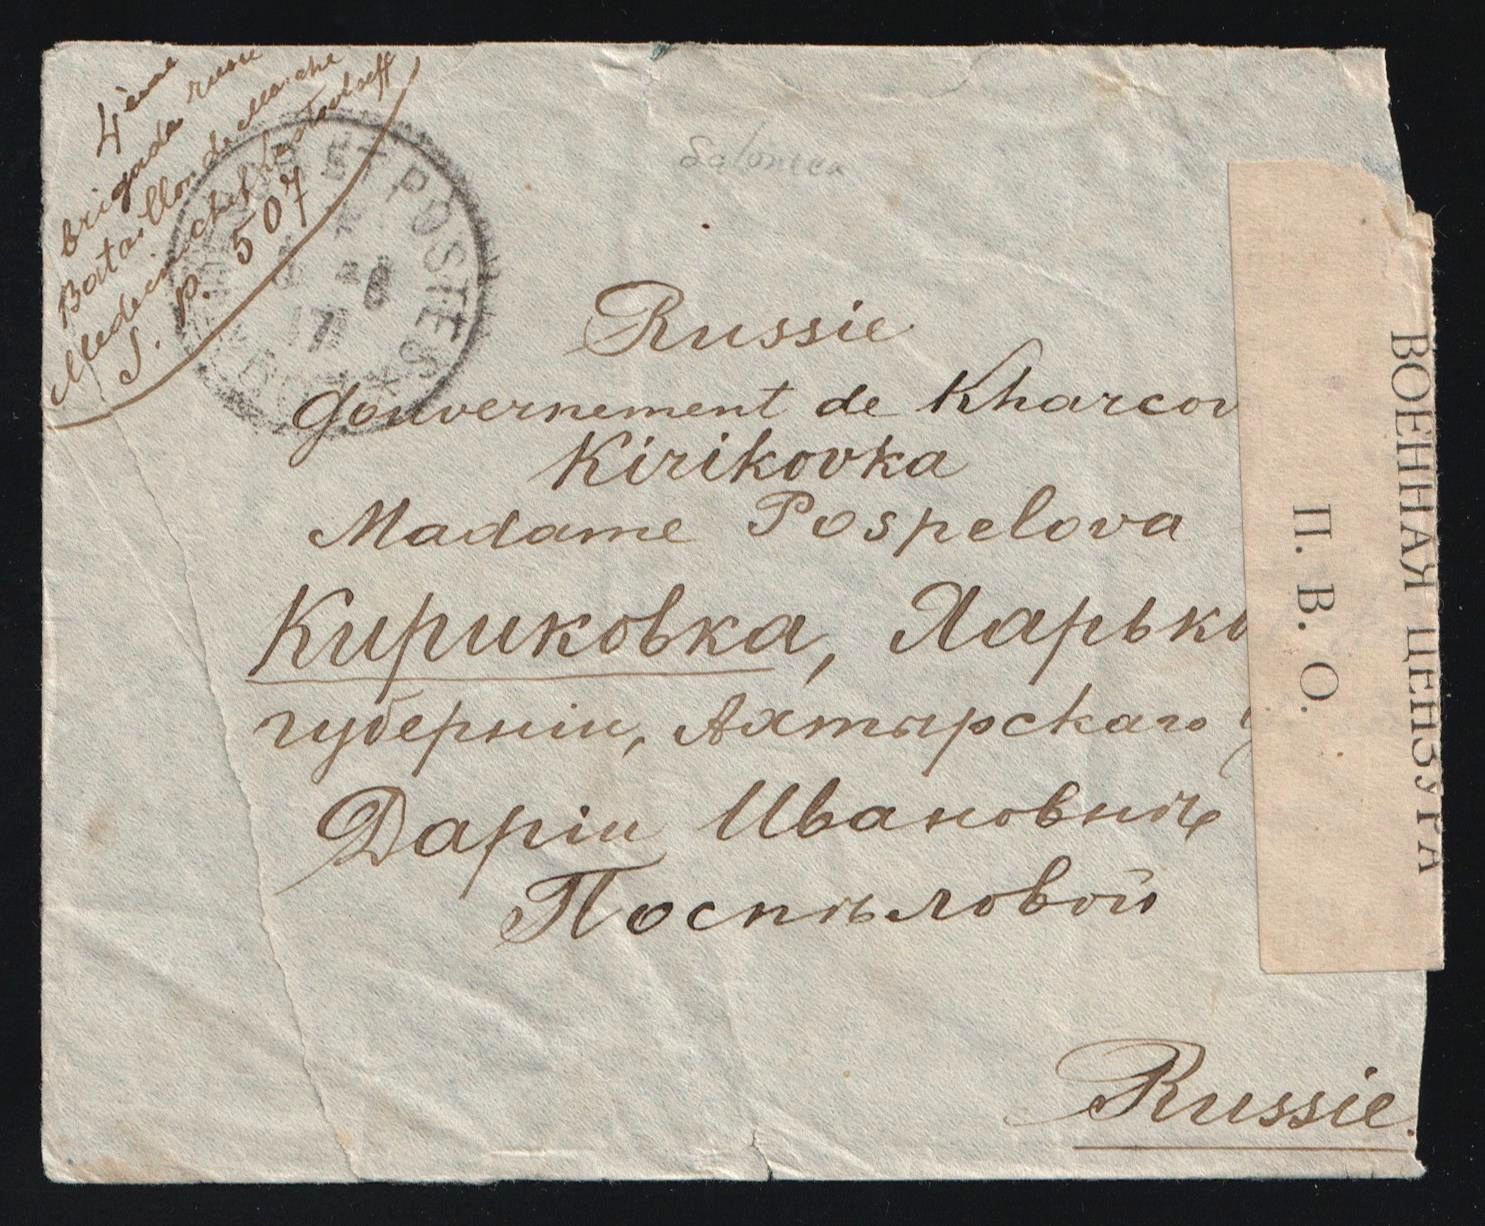 4ème
brigade russe
Bataillon de Marche
Medecin chef
S. P. 507
TRESOR ET POSTES
17
Salonica
Russie
Gouvernement de Kharcov
Kirikovka
Madame Pospelova
Кириковка, Харьков
губерніи, Ахтырскаго у
Даріи Ивановнѣ
Поспѣловой
Russie.
ВОЕННАЯ ЦЕНЗУРА
П. В. О.